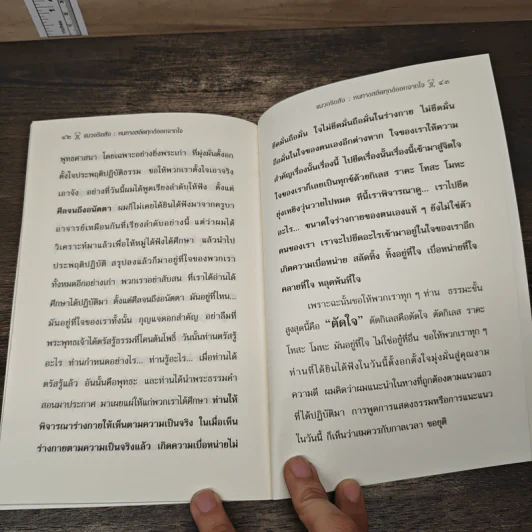 ๔๒ แนวอริยสัจ : หนทางสลัดทุกข์ออกจากใจ
พุทธศาสนา โดยเฉพาะอย่างยิ่งพระเก่า ที่มุ่งมั่นตั้งอก
ตั้งใจประพฤติปฏิบัติธรรม ขอให้พวกเราตั้งใจเอาจริง
เอาจัง อย่างที่วันนี้ผมได้พูดเรียงลำดับให้ฟัง ตั้งแต่
ศีลจนถึงอนัตตา ผมก็ไม่เคยได้ยินได้ฟังมาจากครูบา
อาจารย์เหมือนกันที่เรียงลำดับอย่างนี้ แต่ว่าผมได้
วิเคราะห์มาแล้วเพื่อให้หมู่ได้ฟังได้ศึกษา แล้วนำไป
ประพฤติปฏิบัติ สรุปลงแล้วก็มาอยู่ที่ใจของพวกเรา
ทั้งหมดอีกอย่างเก่า พวกเราอย่าสับสน ที่เราได้อ่านได้
ศึกษาได้ปฏิบัติมา ตั้งแต่ศีลจนถึงอนัตตา มันอยู่ที่ไหน...
มันอยู่ที่ใจของเราทั้งนั้น กุญแจดอกสำคัญ อย่าลืมที่
พระพุทธเจ้าได้ตรัสรู้ธรรมที่โคนต้นโพธิ์ วันนั้นท่านตรัสรู้
อะไร ท่านกำหนดอย่างไร... ท่านรู้อะไร... เมื่อท่านได้
ตรัสรู้แล้ว อันนั้นคือพุทธะ และท่านได้นำพระธรรมคำ
สอนมาประกาศ มาเผยแผ่ให้แก่พวกเราได้ศึกษา ท่านให้
พิจารณาร่างกายให้เห็นตามความเป็นจริง ในเมื่อเห็น
ร่างกายตามความเป็นจริงแล้ว เกิดความเบื่อหน่ายไม่
แนวอริยสัจ : หนทางสลัดทุกข์ออกจากใจ ๔๓
ยึดมั่นถือมั่น ใจไม่ยึดมั่นถือมั่นในร่างกาย ไม่ยึดมั่น
ถือมั่นในใจของตนเองอีกต่างหาก ใจของเราให้ความ
สำคัญเรื่องนั้นเรื่องนี้ ไปยึดเรื่องนั้นเรื่องนี้เข้ามาสู่จิตใจ
ใจของเราก็เลยเป็นทุกข์ด้วยกิเลส ราคะ โทสะ โมหะ
ยุ่งเหยิงวุ่นวายไปหมด ที่นี้เราพิจารณาดู... เราไปยึด
อะไร... ขนาดใจร่างกายของตนเองแท้ ๆ ยังไม่ใช่ตัว
ตนของเรา เราจะไปยึดอะไรเข้ามาอยู่ในใจของเราอีก
เกิดความเบื่อหน่าย สลัดทิ้ง ทิ้งอยู่ที่ใจ เบื่อหน่ายที่ใจ
คลายที่ใจ หลุดพ้นที่ใจ
เพราะฉะนั้นขอให้พวกเราทุก ๆ ท่าน ธรรมะขั้น
สูงสุดนี้คือ “ตัดใจ” ตัดกิเลสคือตัดใจ ตัดกิเลส ราคะ
โทสะ โมหะ มันอยู่ที่ใจ ไม่ใช่อยู่ที่อื่น ขอให้พวกเราทุก ๆ
ท่านที่ได้ยินได้ฟังในวันนี้ตั้งอกตั้งใจมุ่งมั่นสู่คุณงาม
ความดี ผมคิดว่าผมแนะนำในทางที่ถูกต้องตามแนวแถว
ที่ได้ปฏิบัติมา การพูดการแสดงธรรมหรือการแนะแนว
ในวันนี้ ก็เห็นว่าสมควรกับกาลเวลา ขอยุติ